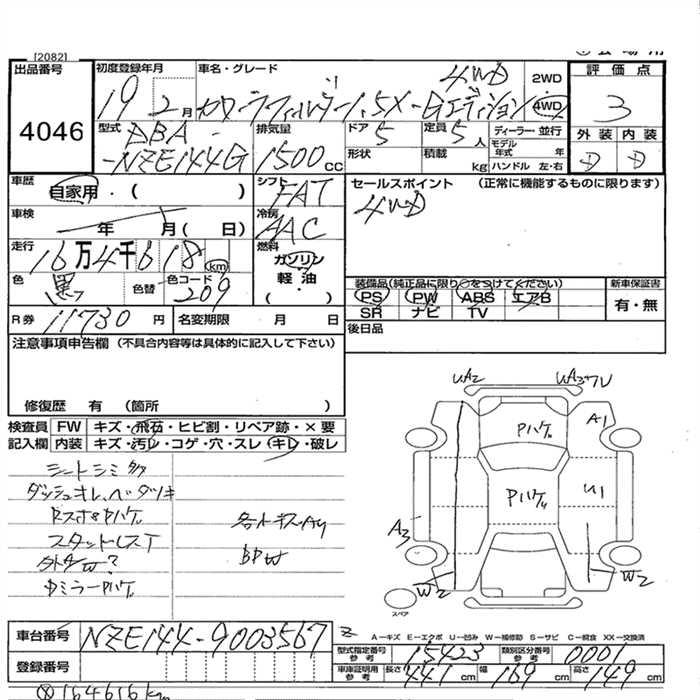 [2082]
出品番号
4046
初度登録年月
19 2月
車名・グレード
カローラフィルダー 1.5X-Gエディション
4WD
2WD
4WD
評価点
3
外装 内装
D D
型式
DBA-
-NZE144G
排気量
1500 CC
ドア 5
定員 5 人
形状
積載 kg
ディーラー・並行
モデル年式 年
ハンドル 左・右
車歴
自家用・( )
シフト
FAT
セールスポイント (正常に機能するものに限ります)
4WD
車検
年 月( 日)
冷房
AAC
走行
16万4千618 km
燃料
ガソリン
軽油
( ・ )
色 黒
色替
色コード
209
装備品(純正品に限り○をつけてください)
PS PW ABS エアB
SR ナビ TV
新車保証書
有・無
R券 11730 円
名変期限 月 日
後日品
注意事項申告欄 (不具合内容等は具体的に記入して下さい)
修復歴 有 (箇所 )
検査員記入欄
FW キズ・飛石・ヒビ割・リペア跡・×要
内装 キズ・汚レ・コゲ・穴・スレ・キレ・破レ
シートシミ多
ダッシュキレ、ベタツキ
スタットレスT
外ケW?
ミラーPハゲ
各小キズ・Ay
BPW
UA2
UA3
A1
Pハゲ
Pハゲ
U1
A3
W2
W2
スペア
A―キズ E―エクボ U―凹み W―補修跡 S―サビ C―腐食 XX―交換済
車台番号
NZE144-9003567
登録番号
型式指定番号 参考
15423
類別区分番号 参考
0001
車庫証明用 参考
長さ 441 cm
幅 169 cm
高さ 149 cm
164616km